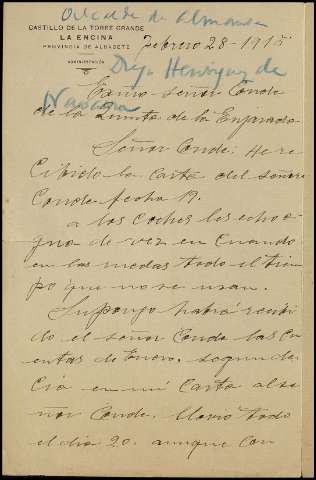 Alcalde de Almansa
CASTILLO DE LA TORRE GRANDE
LA ENCINA
PROVINCIA DE ALBACETE
ADMINISTRACIÓN
Febrero 28-1915
Diego Henriquez de
Navarra
Exmo Señor Conde
de la Quinta de la Enjarada
Señor Conde: He re
cibido la carta del señor
Conde fecha 19.
a los coches les echo a
gua de vez en cuando
en las ruedas todo el tiem
po que no se usan.
Supongo habrá recibi
do el señor Conde las cu
entas de Enero. segun de
cia en mi carta al se
ñor Conde. llovio todo
el dia 20. aunque con